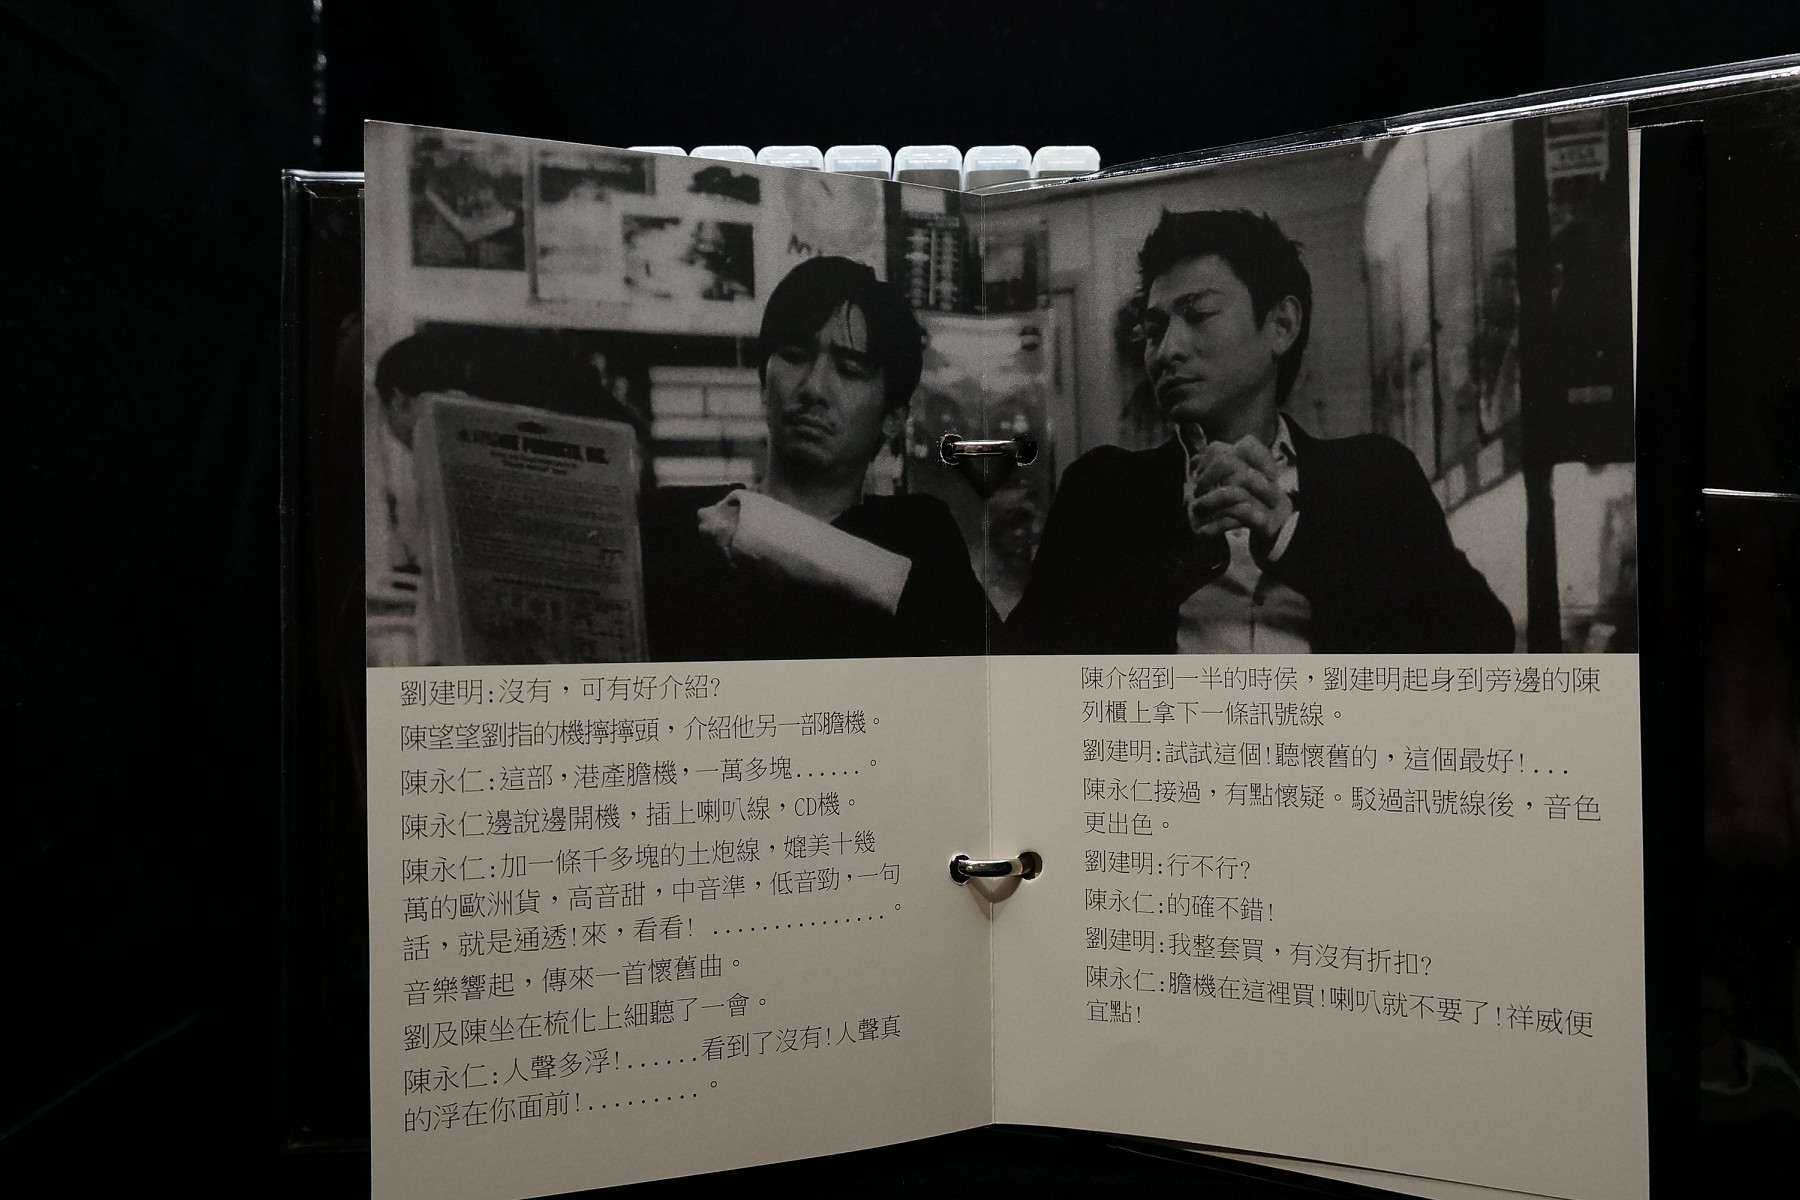 劉建明:沒有，可有好介紹?
陳望望劉指的機擰擰頭，介紹他另一部膽機。
陳永仁:這部，港產膽機，一萬多塊......。
陳永仁邊說邊開機，插上喇叭線，CD機。
陳永仁:加一條千多塊的土炮線，媲美十幾
萬的歐洲貨，高音甜，中音準，低音勁，一句
話，就是通透!來，看看! ...............。
音樂響起，傳來一首懷舊曲。
劉及陳坐在梳化上細聽了一會。
陳永仁:人聲多浮!......看到了沒有!人聲真
的浮在你面前!.........。
陳介紹到一半的時侯，劉建明起身到旁邊的陳
列櫃上拿下一條訊號線。
劉建明:試試這個!聽懷舊的，這個最好!...
陳永仁接過，有點懷疑。駁過訊號線後，音色
更出色。
劉建明:行不行?
陳永仁:的確不錯!
劉建明:我整套買，有沒有折扣?
陳永仁:膽機在這裡買!喇叭就不要了!祥威便
宜點!